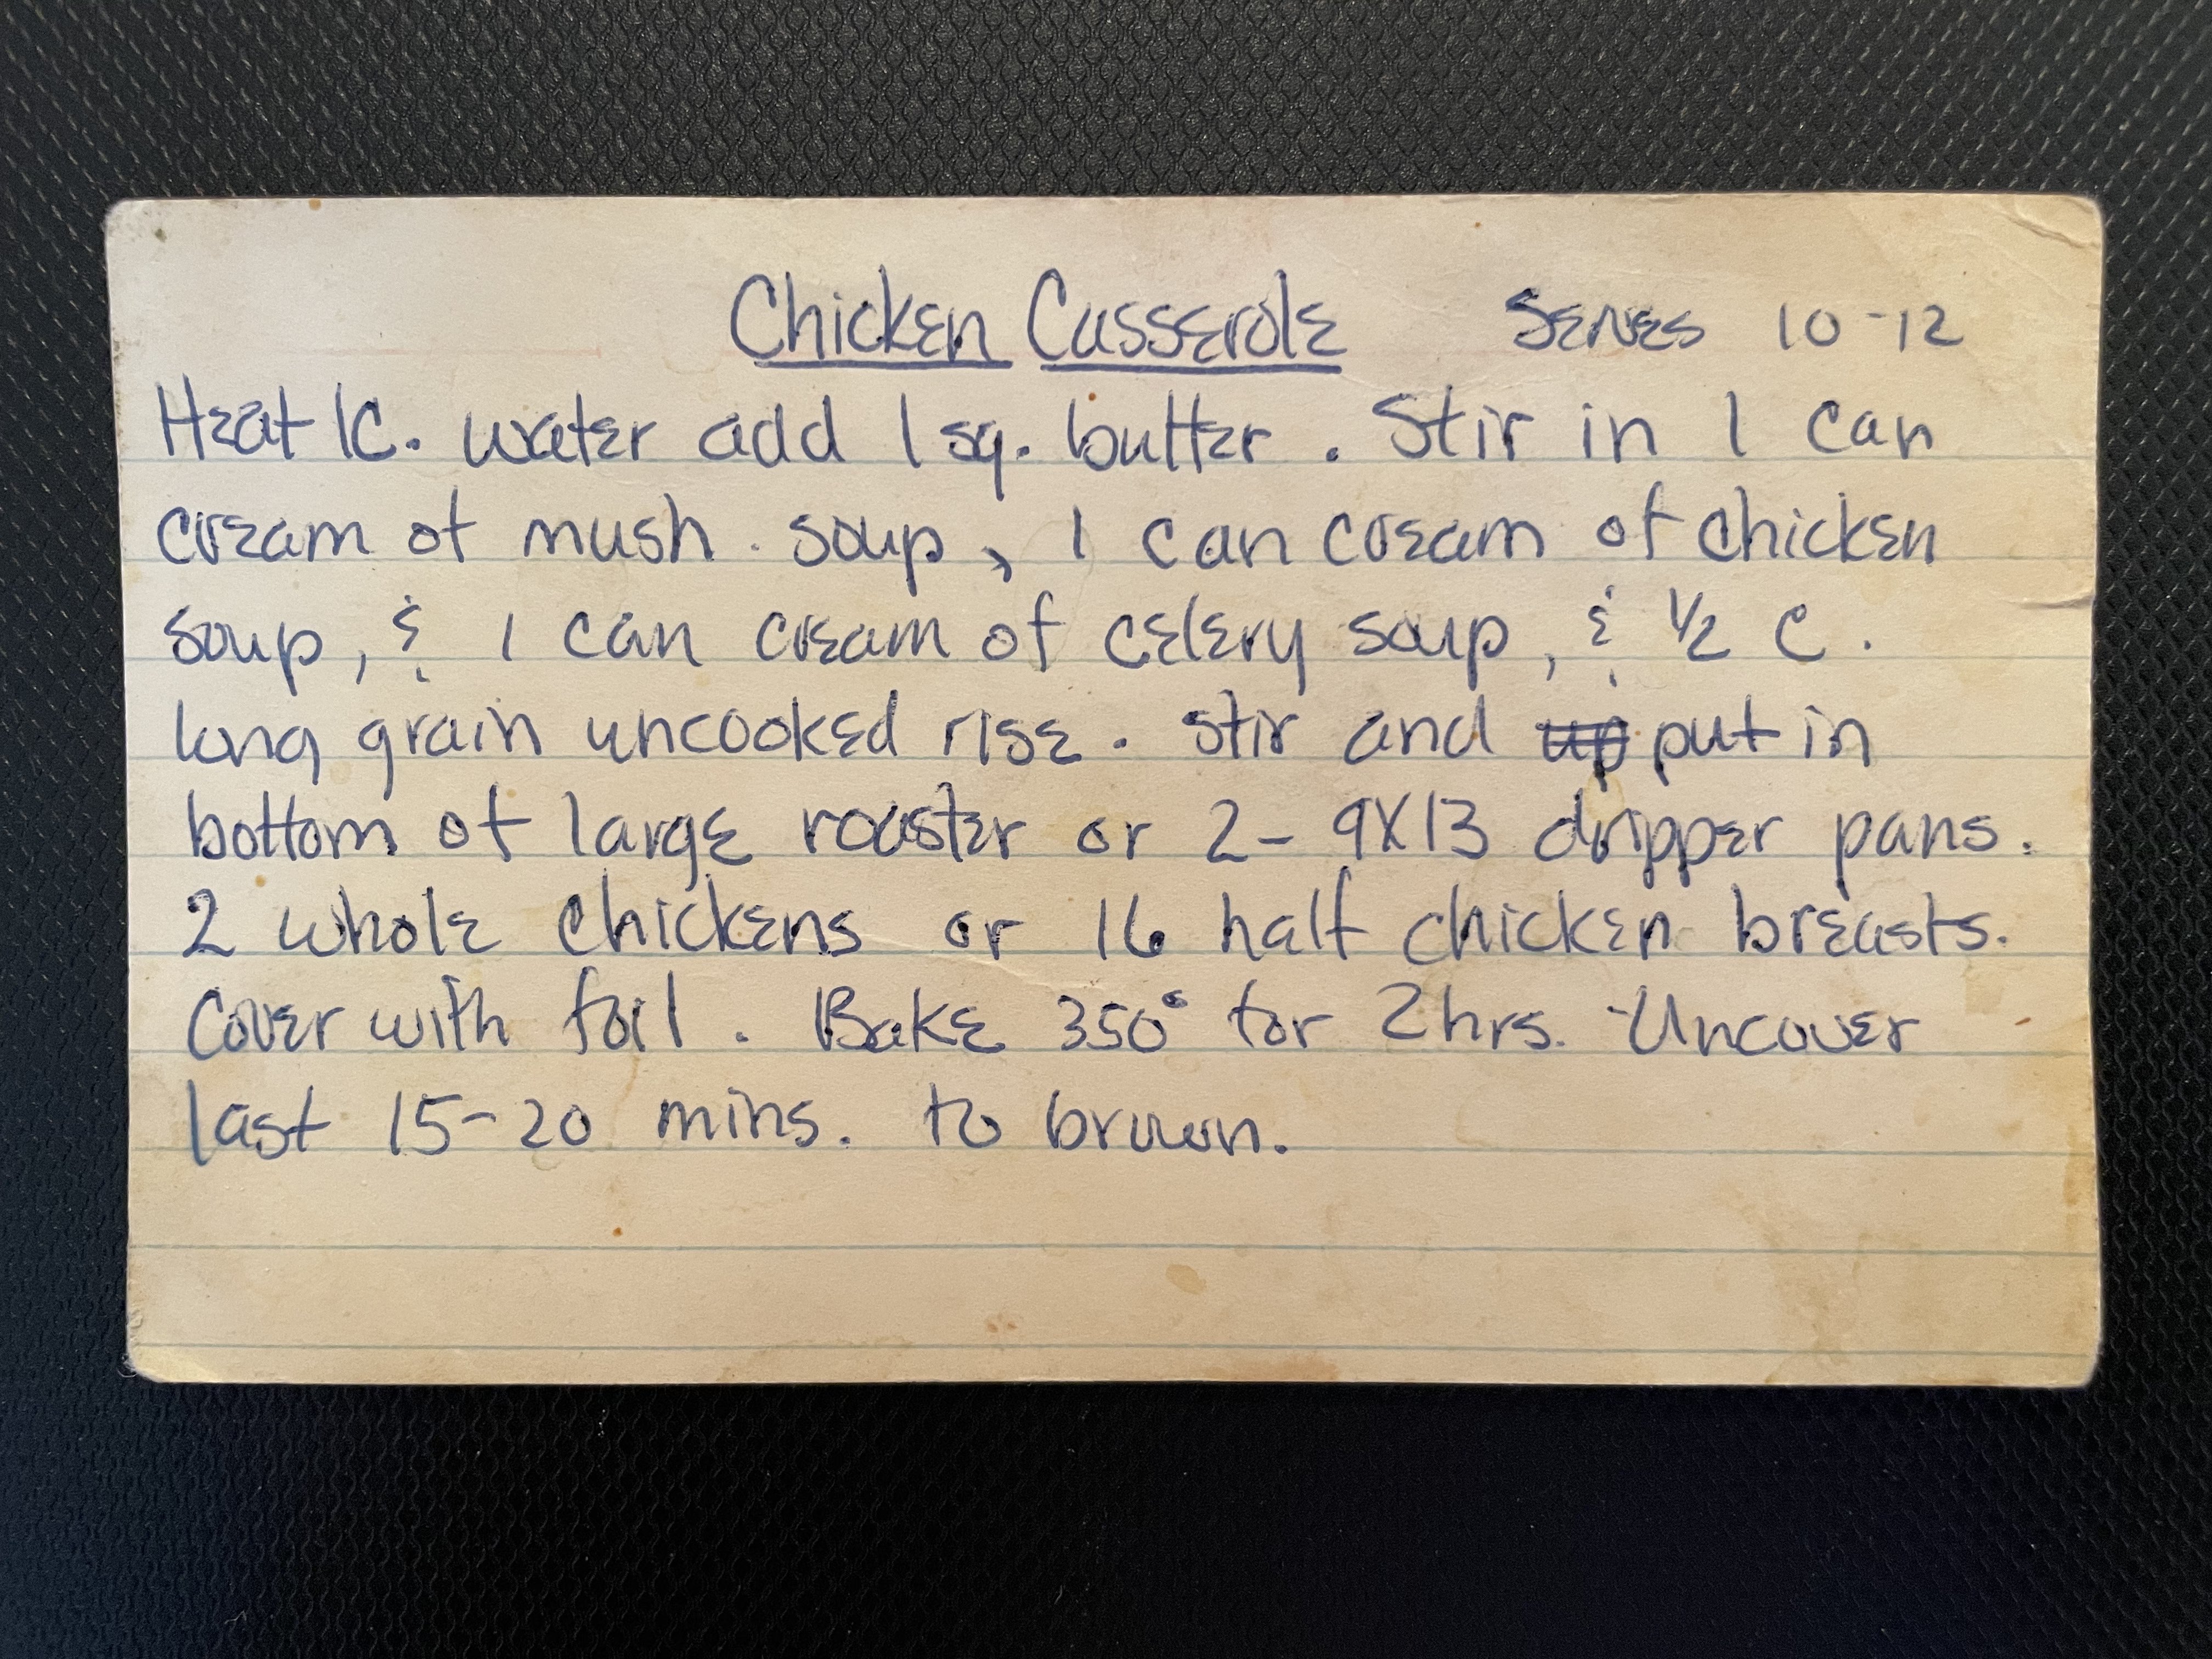 Chicken Casserole Serves 10-12
Heat 1C. water add 1 sq. butter. Stir in 1 can
cream of mush. soup, 1 can cream of chicken
soup, & 1 can cream of celery soup, & 1/2 C.
long grain uncooked rise. Stir and up put in
bottom of large roaster or 2- 9X13 dripper pans.
2 whole chickens or 16 half chicken breasts.
Cover with foil. Bake 350° for 2 hrs. Uncover
last 15-20 mins. to brown.